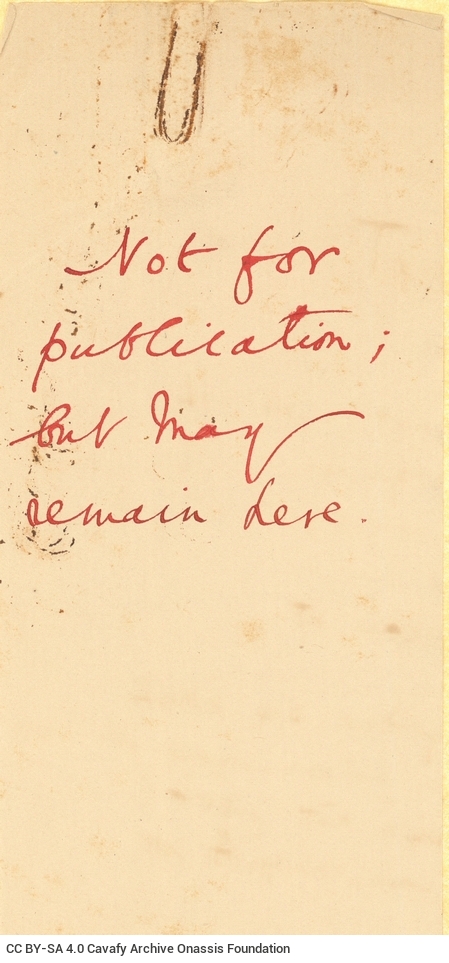 Not for
publication;
but may
remain here.
CC BY-SA 4.0 Cavafy Archive Onassis Foundation